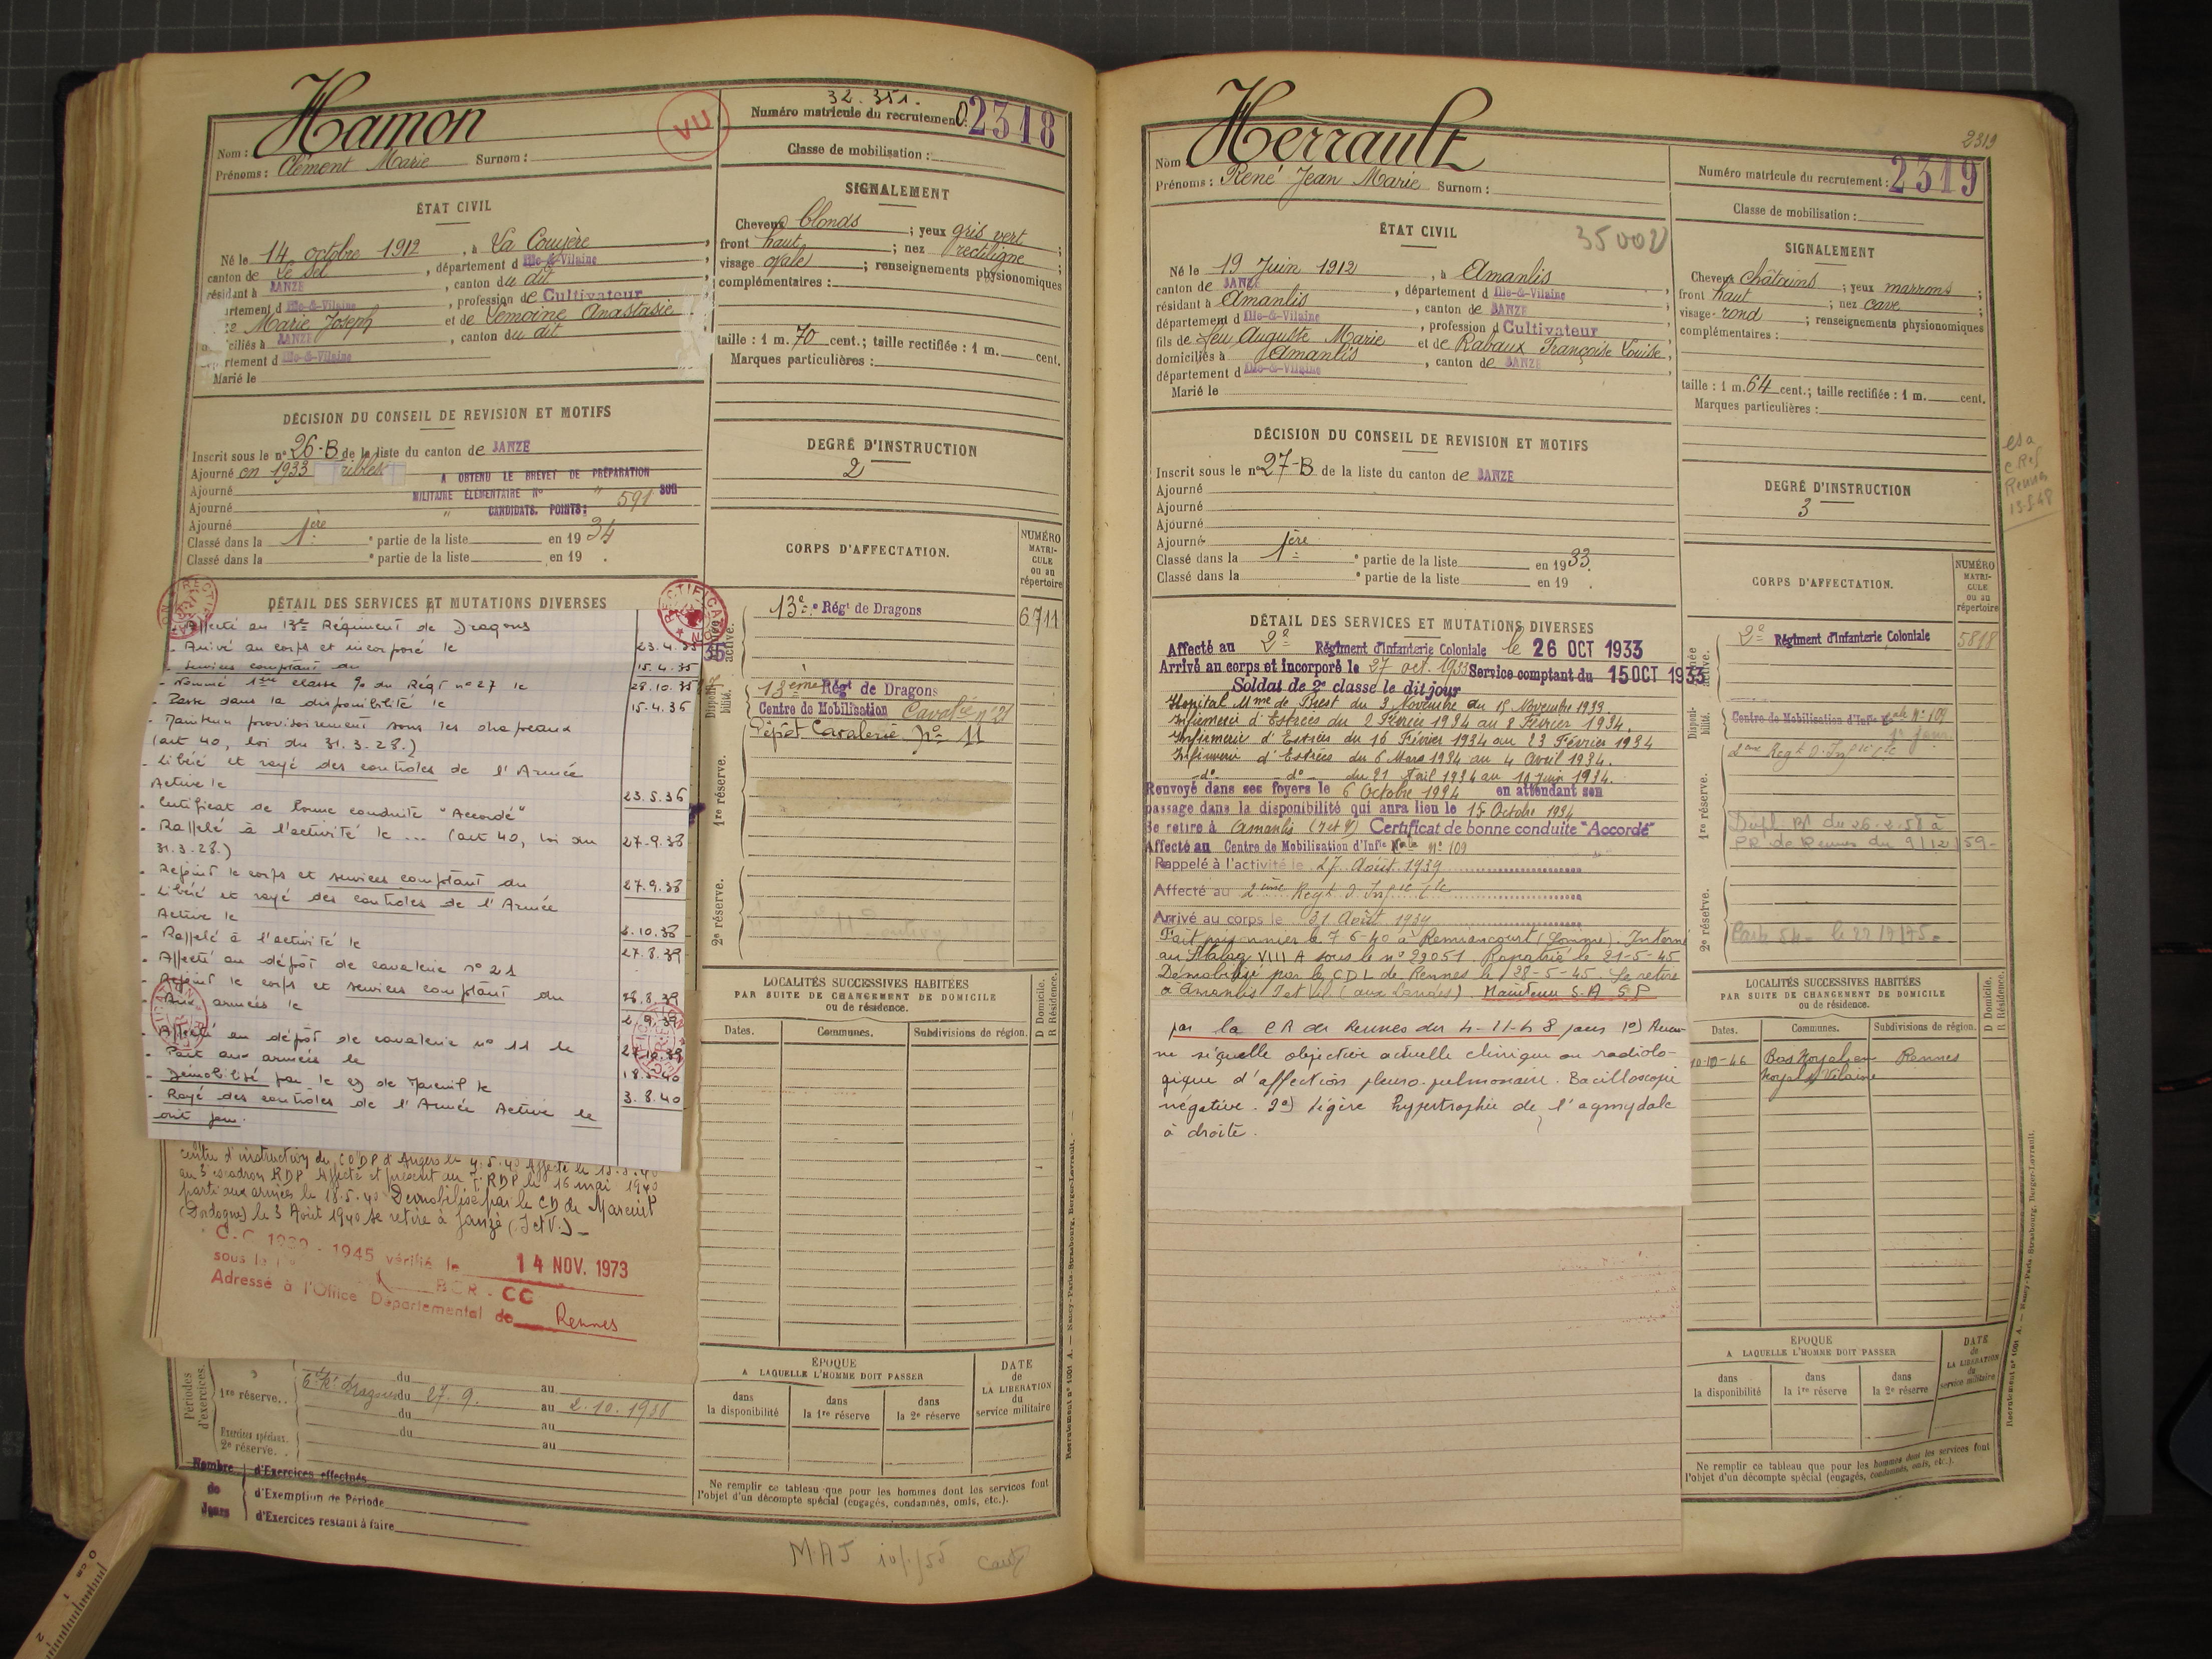 Hamon
VU
Nom :
Prénoms : Clément Marie Surnom :
32.351.
Numéro matricule du recrutement : 02318
Classe de mobilisation :
ÉTAT CIVIL
Né le 14 octobre 1912, à La Couyère,
canton de Le Sel, département d Ille-&-Vilaine,
résidant à JANZÉ, canton du dit
rtement d Ille-&-Vilaine, profession de Cultivateur
Marie Joseph et de Lemoine Anastasie
ciliés à JANZÉ, canton du dit
rtement d Ille-&-Vilaine
Marié le
SIGNALEMENT
Cheveux blonds ; yeux gris vert ;
front haut ; nez rectiligne ;
visage ovale ; renseignements physionomiques
complémentaires :
taille : 1 m. 70 cent.; taille rectifiée : 1 m. cent.
Marques particulières :
DÉCISION DU CONSEIL DE REVISION ET MOTIFS
Inscrit sous le n° 26-B de la liste du canton de JANZÉ
Ajourné en 1933
A OBTENU LE BREVET DE PRÉPARATION
Ajourné
MILITAIRE ÉLÉMENTAIRE N° " 591 SUR
Ajourné
" CANDIDATS. POINTS:
Ajourné
Classé dans la 1ère partie de la liste en 1934
Classé dans la e partie de la liste en 19 .
DEGRÉ D'INSTRUCTION
2
CORPS D'AFFECTATION.
NUMÉRO MATRI-CULE ou au répertoire
13e Régt de Dragons 6711
Disponibilité.
13ème Régt de Dragons
Centre de Mobilisation Cavalie n° 21
Dépôt Cavalerie n° 11
1re réserve.
2e réserve.
DÉTAIL DES SERVICES ET MUTATIONS DIVERSES
- Affecté au 13e Régiment de Dragons
- Arrivé au corps et incorporé le 23.4.35
- Services comptant du 15.4.35
- Nommé 1ère classe % du Régt n° 27 le 28.10.35
- Passe dans la disponibilité le 15.4.36
- Maintenu provisoirement sous les drapeaux
(art 40, loi du 31.3.28.)
- Libéré et rayé des contrôles de l'Armée
Active le 23.5.36
- Certificat de bonne conduite "Accordé"
- Rappelé à l'activité le ... (art 40, loi du 27.9.38
31.3.28.)
- Rejoint le corps et services comptant du 27.9.38
- Libéré et rayé des contrôles de l'Armée
Active le 2.10.38
- Rappelé à l'activité le 27.8.39
- Affecté au dépôt de cavalerie n° 21
- Rejoint le corps et services comptant du 28.8.39
- Aux armées le 2.9.39
- Affecté au dépôt de cavalerie n° 11 le 27.10.39
- Part aux armées le 18.5.40
- Démobilisé par le CD de Mareuil le 3.8.40
- Rayé des contrôles de l'Armée Active le
dit jour.
centre d'instruction du CODP d'Angers le 4.5.40 Affecté le 13.5.40
au 3 escadron RDP Affecté et présent au 7 RDP le 16 mai 1940
parti aux armées le 18.5.40 Démobilisé par le CD de Mareuil
(Dordogne) le 3 Août 1940 se retire à Janzé (I et V.) -
C.C 1939 - 1945 vérifié le 14 NOV. 1973
sous le n°
BCR - CC
Adressé à l'Office Départemental de Rennes
LOCALITÉS SUCCESSIVES HABITÉES
PAR SUITE DE CHANGEMENT DE DOMICILE
ou de résidence.
Dates. Communes. Subdivisions de région. D Domicile. R Résidence.
ÉPOQUE
A LAQUELLE L'HOMME DOIT PASSER
dans la disponibilité
dans la 1re réserve
dans la 2e réserve
DATE de LA LIBÉRATION du service militaire
Périodes d'exercices.
1re réserve. .
6e Rt dragons du 27.9. au 2.10.1938
Exercices spéciaux.
2e réserve. .
Nombre de Jours
d'Exercices effectués
d'Exemption de Période
d'Exercices restant à faire
Ne remplir ce tableau que pour les hommes dont les services font
l'objet d'un décompte spécial (engagés, condamnés, omis, etc.).
Recrutement n° 1001 A. — Nancy-Paris-Strasbourg, Berger-Levrault.
MAJ
Herrault
2319
Nom
Prénoms : René Jean Marie Surnom :
Numéro matricule du recrutement : 2319
Classe de mobilisation :
ÉTAT CIVIL
Né le 19 Juin 1912, à Amanlis
canton de JANZÉ, département d Ille-&-Vilaine
résidant à Amanlis, canton de JANZÉ
département d Ille-&-Vilaine, profession d Cultivateur
fils de feu Auguste Marie et de Rabaux Françoise Louise,
domiciliés à Amanlis, canton de JANZÉ
département d Ille-&-Vilaine
Marié le
SIGNALEMENT
Cheveux châtains ; yeux marrons ;
front haut ; nez cave ;
visage rond ; renseignements physionomiques
complémentaires :
taille : 1 m. 64 cent.; taille rectifiée : 1 m. cent.
Marques particulières :
DÉCISION DU CONSEIL DE REVISION ET MOTIFS
Inscrit sous le n° 27-B de la liste du canton de JANZÉ
Ajourné
Ajourné
Ajourné
Ajourné
Classé dans la 1ère partie de la liste en 1933.
Classé dans la e partie de la liste en 19 .
DEGRÉ D'INSTRUCTION
3
CORPS D'AFFECTATION.
NUMÉRO MATRI-CULE ou au répertoire
2e Régiment d'Infanterie Coloniale 5818
Disponibilité.
Centre de Mobilisation d'Infie Cale N° 109
2ème Regt d'Infie Cle
1re réserve.
2e réserve.
DÉTAIL DES SERVICES ET MUTATIONS DIVERSES
Affecté au 2e Régiment d'Infanterie Coloniale le 26 OCT 1933
Arrivé au corps et incorporé le 27 oct. 1933 Service comptant du 15 OCT 1933
Soldat de 2e classe le dit jour
Hopital Mme de Brest du 3 Novembre au 15 Novembre 1933.
Infirmerie d'Estrées du 2 Février 1934 au 8 Février 1934.
Infirmerie d'Estrées du 16 Février 1934 au 23 Février 1934
Infirmerie d'Estrées du 6 Mars 1934 au 4 Avril 1934.
-do- -do- du 21 Avril 1934 au 10 Juin 1934.
Renvoyé dans ses foyers le 6 Octobre 1934 en attendant son
passage dans la disponibilité qui aura lieu le 15 Octobre 1934
Se retire à Amanlis (I et V) Certificat de bonne conduite "Accordé"
Affecté au Centre de Mobilisation d'Infie Cale N° 109
Rappelé à l'activité le 27 Août 1939
Affecté au 2ème Regt d'Infie Cle
Arrivé au corps le 31 Août 1939
Fait prisonnier le 7-6-40 à Remiancourt (Somme). Interné
au Stalag VIII A sous le n° 29051. Rapatrié le 21-5-45
Démobilisé par le CDL de Rennes le 28-5-45. Se retire
à Amanlis I et Vil (aux Landes). Maintenu S.A S P
par la CR de Rennes du 4-11-48 pour 1°) Aucu-
ne séquelle objective actuelle clinique ou radiolo-
gique d'affection pleuro-pulmonaire. Bacilloscopie
négative. 2°) légère hypertrophie de l'agmydale
à droite.
LOCALITÉS SUCCESSIVES HABITÉES
PAR SUITE DE CHANGEMENT DE DOMICILE
ou de résidence.
Dates. Communes. Subdivisions de région. D Domicile. R Résidence.
10-10-46 Rennes
Noyal s/Vilaine
ÉPOQUE
A LAQUELLE L'HOMME DOIT PASSER
dans la disponibilité
dans la 1re réserve
dans la 2e réserve
DATE de LA LIBÉRATION du service militaire
Ne remplir ce tableau que pour les hommes dont les services font
l'objet d'un décompte spécial (engagés, condamnés, omis, etc.).
Recrutement n° 1001 A. — Nancy-Paris-Strasbourg, Berger-Levrault.